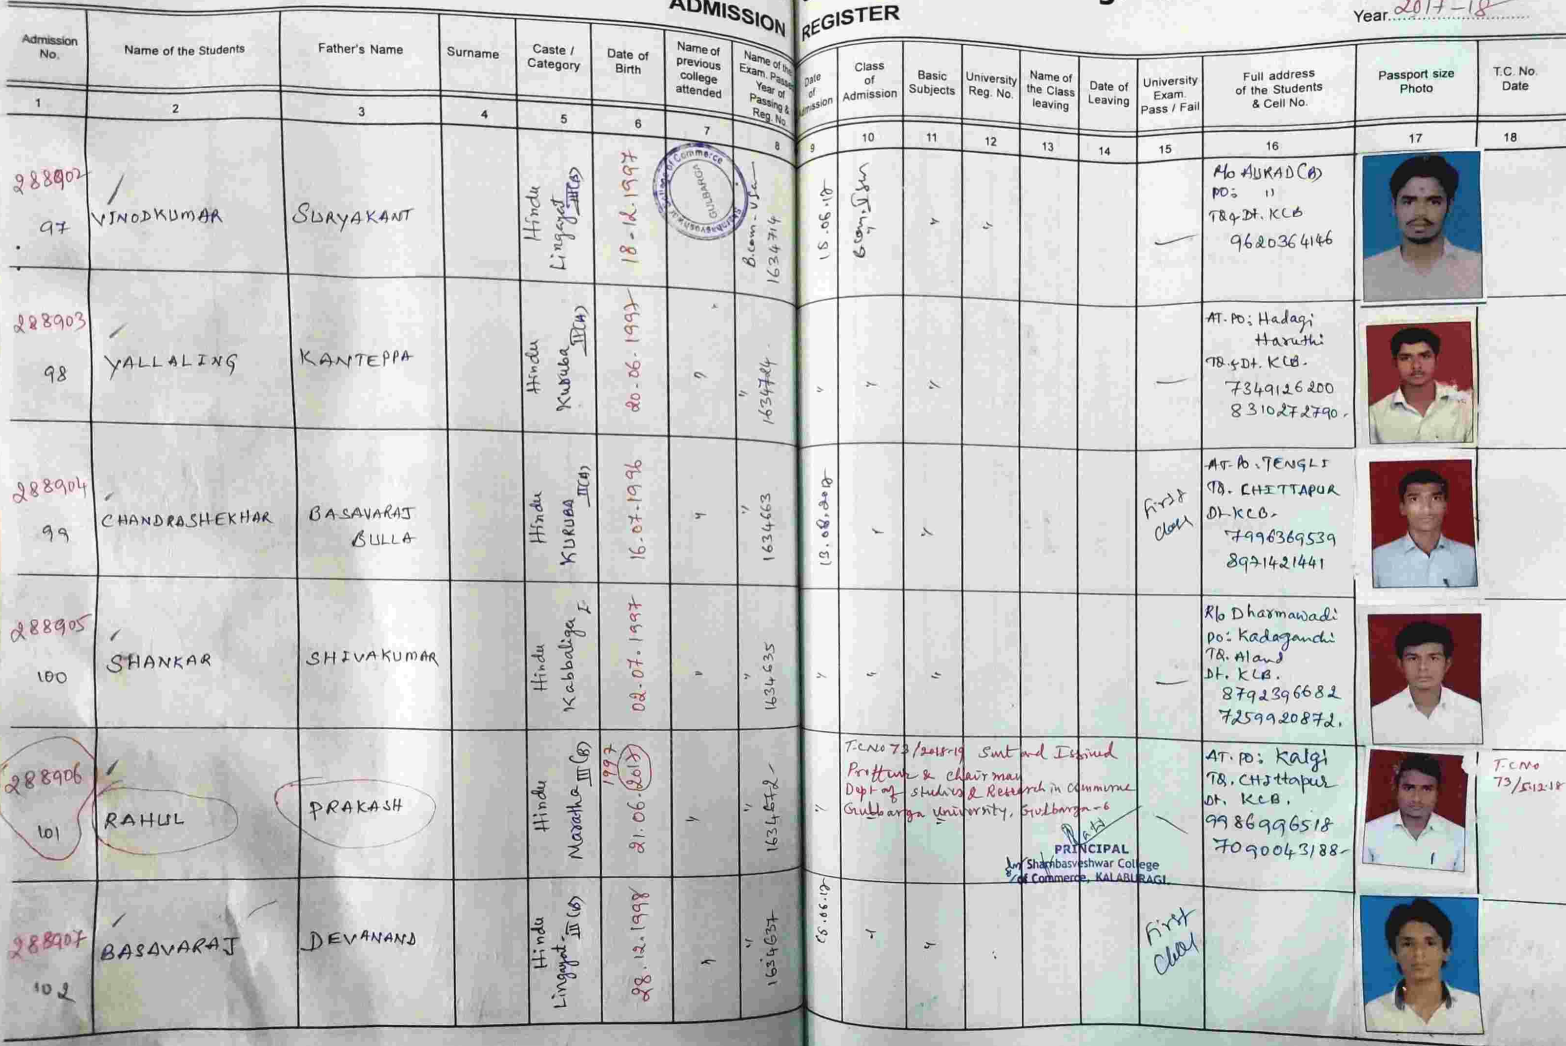 ADMISSION REGISTER
Year 2017-18
Admission No.
Name of the Students
Father's Name
Surname
Caste / Category
Date of Birth
Name of previous college attended
Name of the Exam. Passed Year of Passing & Reg. No.
Date of Admission
Class of Admission
Basic Subjects
University Reg. No.
Name of the Class leaving
Date of Leaving
University Exam. Pass / Fail
Full address of the Students & Cell No.
Passport size Photo
T.C. No. Date
1 2 3 4 5 6 7 8 9 10 11 12 13 14 15 16 17 18
288902
97
VINODKUMAR
SURYAKANT
Hindu
Lingayat III(B)
18-12-1997
of Commerce
GULBARGA
B.com-
1634714
B.com
"
"
"
R/o AURAD(B)
PO: "
TQ& Dt. KLB
9620364146
288903
98
YALLALING
KANTEPPA
Hindu
Kuruba II(A)
20-06-1997
"
"
"
1634724
"
"
"
AT. PO: Hadagi
Haruthi
TQ.&Dt. KLB.
7349126200
8310272790.
288904
99
CHANDRASHEKHAR
BASAVARAJ
BULLA
Hindu
KURUBA II(A)
16-07-1996
"
"
1634663
"
"
First
class
AT. PO: TENGLI
TQ. CHITTAPUR
Dt. KLB.
7996369539
8971421441
288905
100
SHANKAR
SHIVAKUMAR
Hindu
Kabbaliger I
02-07-1997
"
"
1634635
"
"
"
R/o Dharmawadi
PO: Kadaganchi
TQ. Aland
Dt. KLB.
8792396682
7259920872.
288906
101
RAHUL
PRAKASH
Hindu
Maratha III(B)
1997
21.06.2017
"
"
1634672-
"
T.C NO 73/2018-19 Sent and Issined
& Chairman
Dept of studies & Research in commerce
Gulbarga University, Gulbarga-6
PRINCIPAL
Sharnbasveshwar College
of Commerce, KALABURAGI.
AT. PO: Kalgi
TQ. CHIttapur
Dt. KLB.
9986996518
7090043188-
T.C NO
73/5.12.18
288907
102
BASAVARAJ
DEVANAND
Hindu
Lingayat- III(B)
28.12.1998
"
"
1634637
"
"
First
class